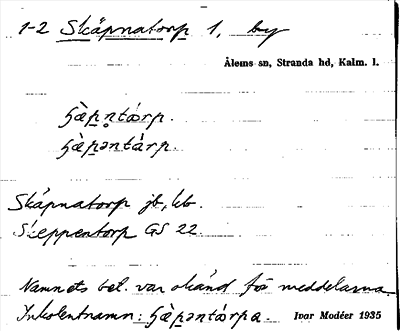 1-2 Skäpnatorp 1, by
Ålems sn, Stranda hd, Kalm. l.
ʃɛ̀pn̥tárp.
ʃɛ̀pəntàrp.
Skäpnatorp jb, kb.
Skeppentorp GS 22.
Namnets bet. var okänd för meddelarna.
Inkolentnamn: ʃɛ̀pəntárpa. Ivar Modéer 1935